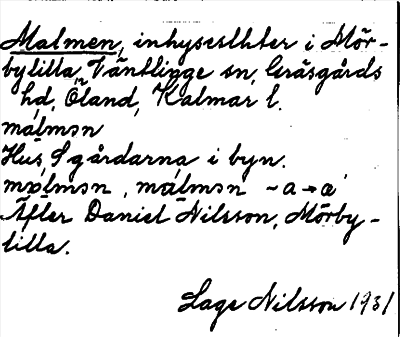 Malmen, inhyseslhter i Mör-
bylilla, Ventlinge sn, Gräsgårds
hd, Öland, Kalmar l.
málmən
Hus, S gårdarna i byn.
málmən ~ a → a
Äfter Daniel Nilsson, Mörby-
lilla.
Lage Nilsson 1931